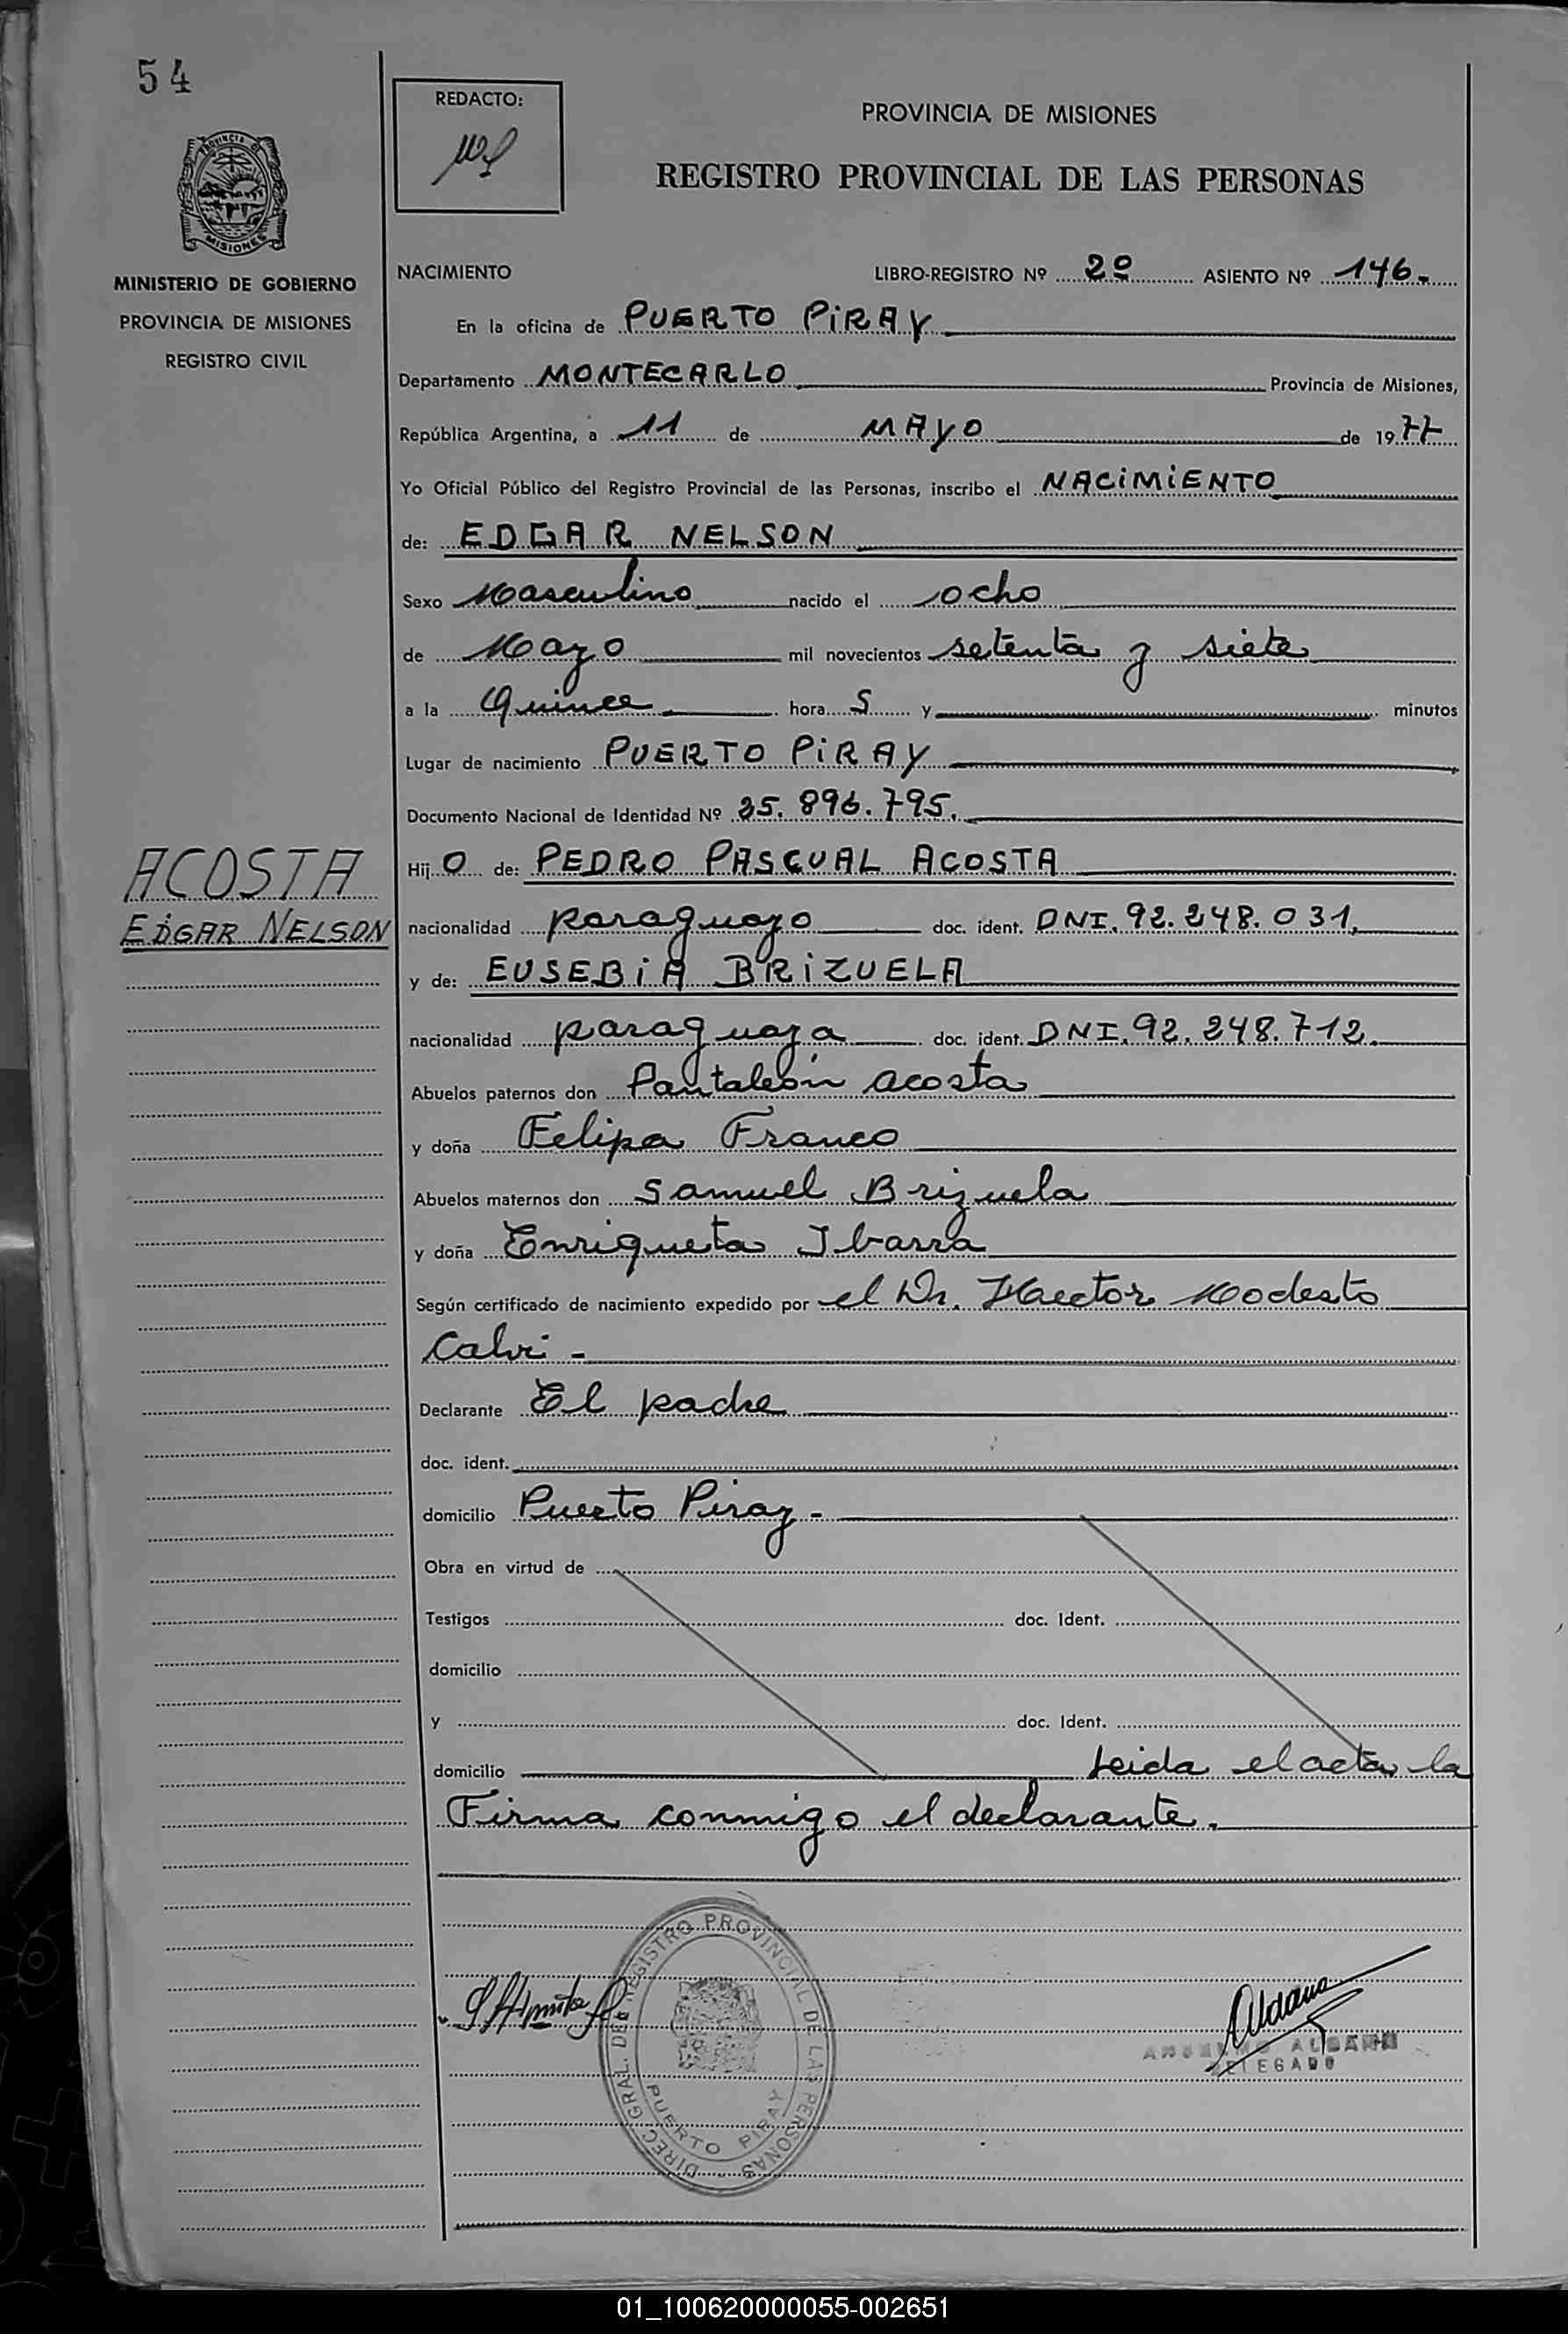 54
REDACTO:
PROVINCIA DE MISIONES
REGISTRO PROVINCIAL DE LAS PERSONAS
PROVINCIA DE
MISIONES
MINISTERIO DE GOBIERNO
PROVINCIA DE MISIONES
REGISTRO CIVIL
NACIMIENTO LIBRO-REGISTRO Nº 2º ASIENTO Nº 146.
En la oficina de PUERTO PiRAY
Departamento MONTECARLO Provincia de Misiones,
República Argentina, a 11 de MAYO de 1977
Yo Oficial Público del Registro Provincial de las Personas, inscribo el NACiMiENTO
de: EDGAR NELSON
Sexo Masculino nacido el ocho
de Mayo mil novecientos setenta y siete
a la Quince hora S y minutos
Lugar de nacimiento PUERTO PiRAY
Documento Nacional de Identidad Nº 25.896.795.
ACOSTA
EDGAR NELSON
Hij O de: PEDRO PASCUAL ACOSTA
nacionalidad paraguayo doc. ident. DNI. 92.248.031,
y de: EUSEBiA BRiZUELA
nacionalidad paraguaya doc. ident. DNI. 92.248.712.
Abuelos paternos don Pantaleón acosta
y doña Felipa Franco
Abuelos maternos don Samuel Brizuela
y doña Enriqueta Ibarra
Según certificado de nacimiento expedido por el Dr. Hector Modesto
Calvi -
Declarante El padre
doc. ident.
domicilio Puerto Piray -
Obra en virtud de
Testigos doc. Ident.
domicilio
y doc. Ident.
domicilio Leida el acta la
Firma conmigo el declarante.
DIREC. GRAL. DEL REGISTRO PROVINCIAL DE LAS PERSONAS
PUERTO PIRAY
Aldana
ALDANA
DELEGADO
01_100620000055-002651